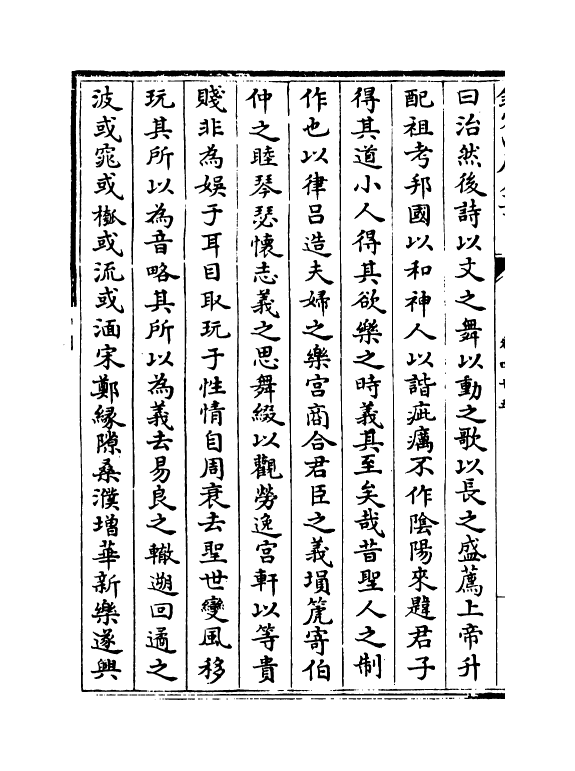 曰治然後詩以文之舞以動之歌以長之盛薦上帝升
配祖考邦國以和神人以諧疵癘不作陰陽來韙君子
得其道小人得其欲樂之時義其至矣哉昔聖人之制
作也以律呂造夫婦之樂宮商合君臣之義塤篪寄伯
仲之睦琴瑟懷志義之思舞綴以觀勞逸宮軒以等貴
賤非為娛于耳目取玩于性情自周衰去聖世變風移
玩其所以為音略其所以為義去易良之轍遡回遹之
波或窕或槬或流或湎宋鄭緣隙桑濮增華新樂遂興